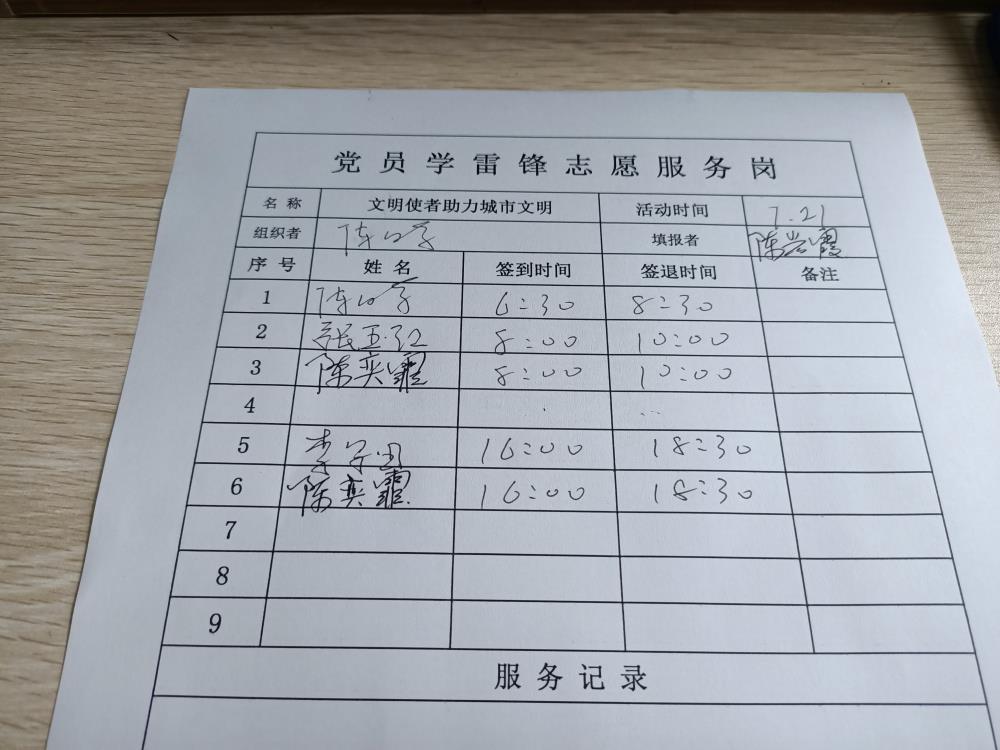 党员学雷锋志愿服务岗
名称 文明使者助力城市文明 活动时间 7.21
组织者 填报者 陈
序号 姓名 签到时间 签退时间 备注
1 6:30 8:30
2 张玉红 8:00 10:00
3 陈奕霏 8:00 10:00
4
5 李 16:00 18:30
6 陈奕霏 16:00 18:30
7
8
9
服务记录